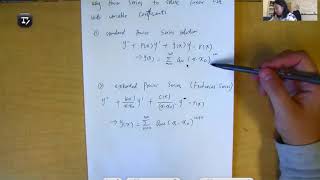 why Power Series to solve linear ODE
with variable coefficients
① standard Power Series solution
y'' + P(x)y' + q(x)y = r(x)
→ y(x) = Σ am (x-x₀)ᵐ
② extended Power Series (Frobenius Series)
y'' + b(x)/(x-x₀) y' + c(x)/(x-x₀)² y = r(x)
→ y(x) = Σ am (x-x₀)